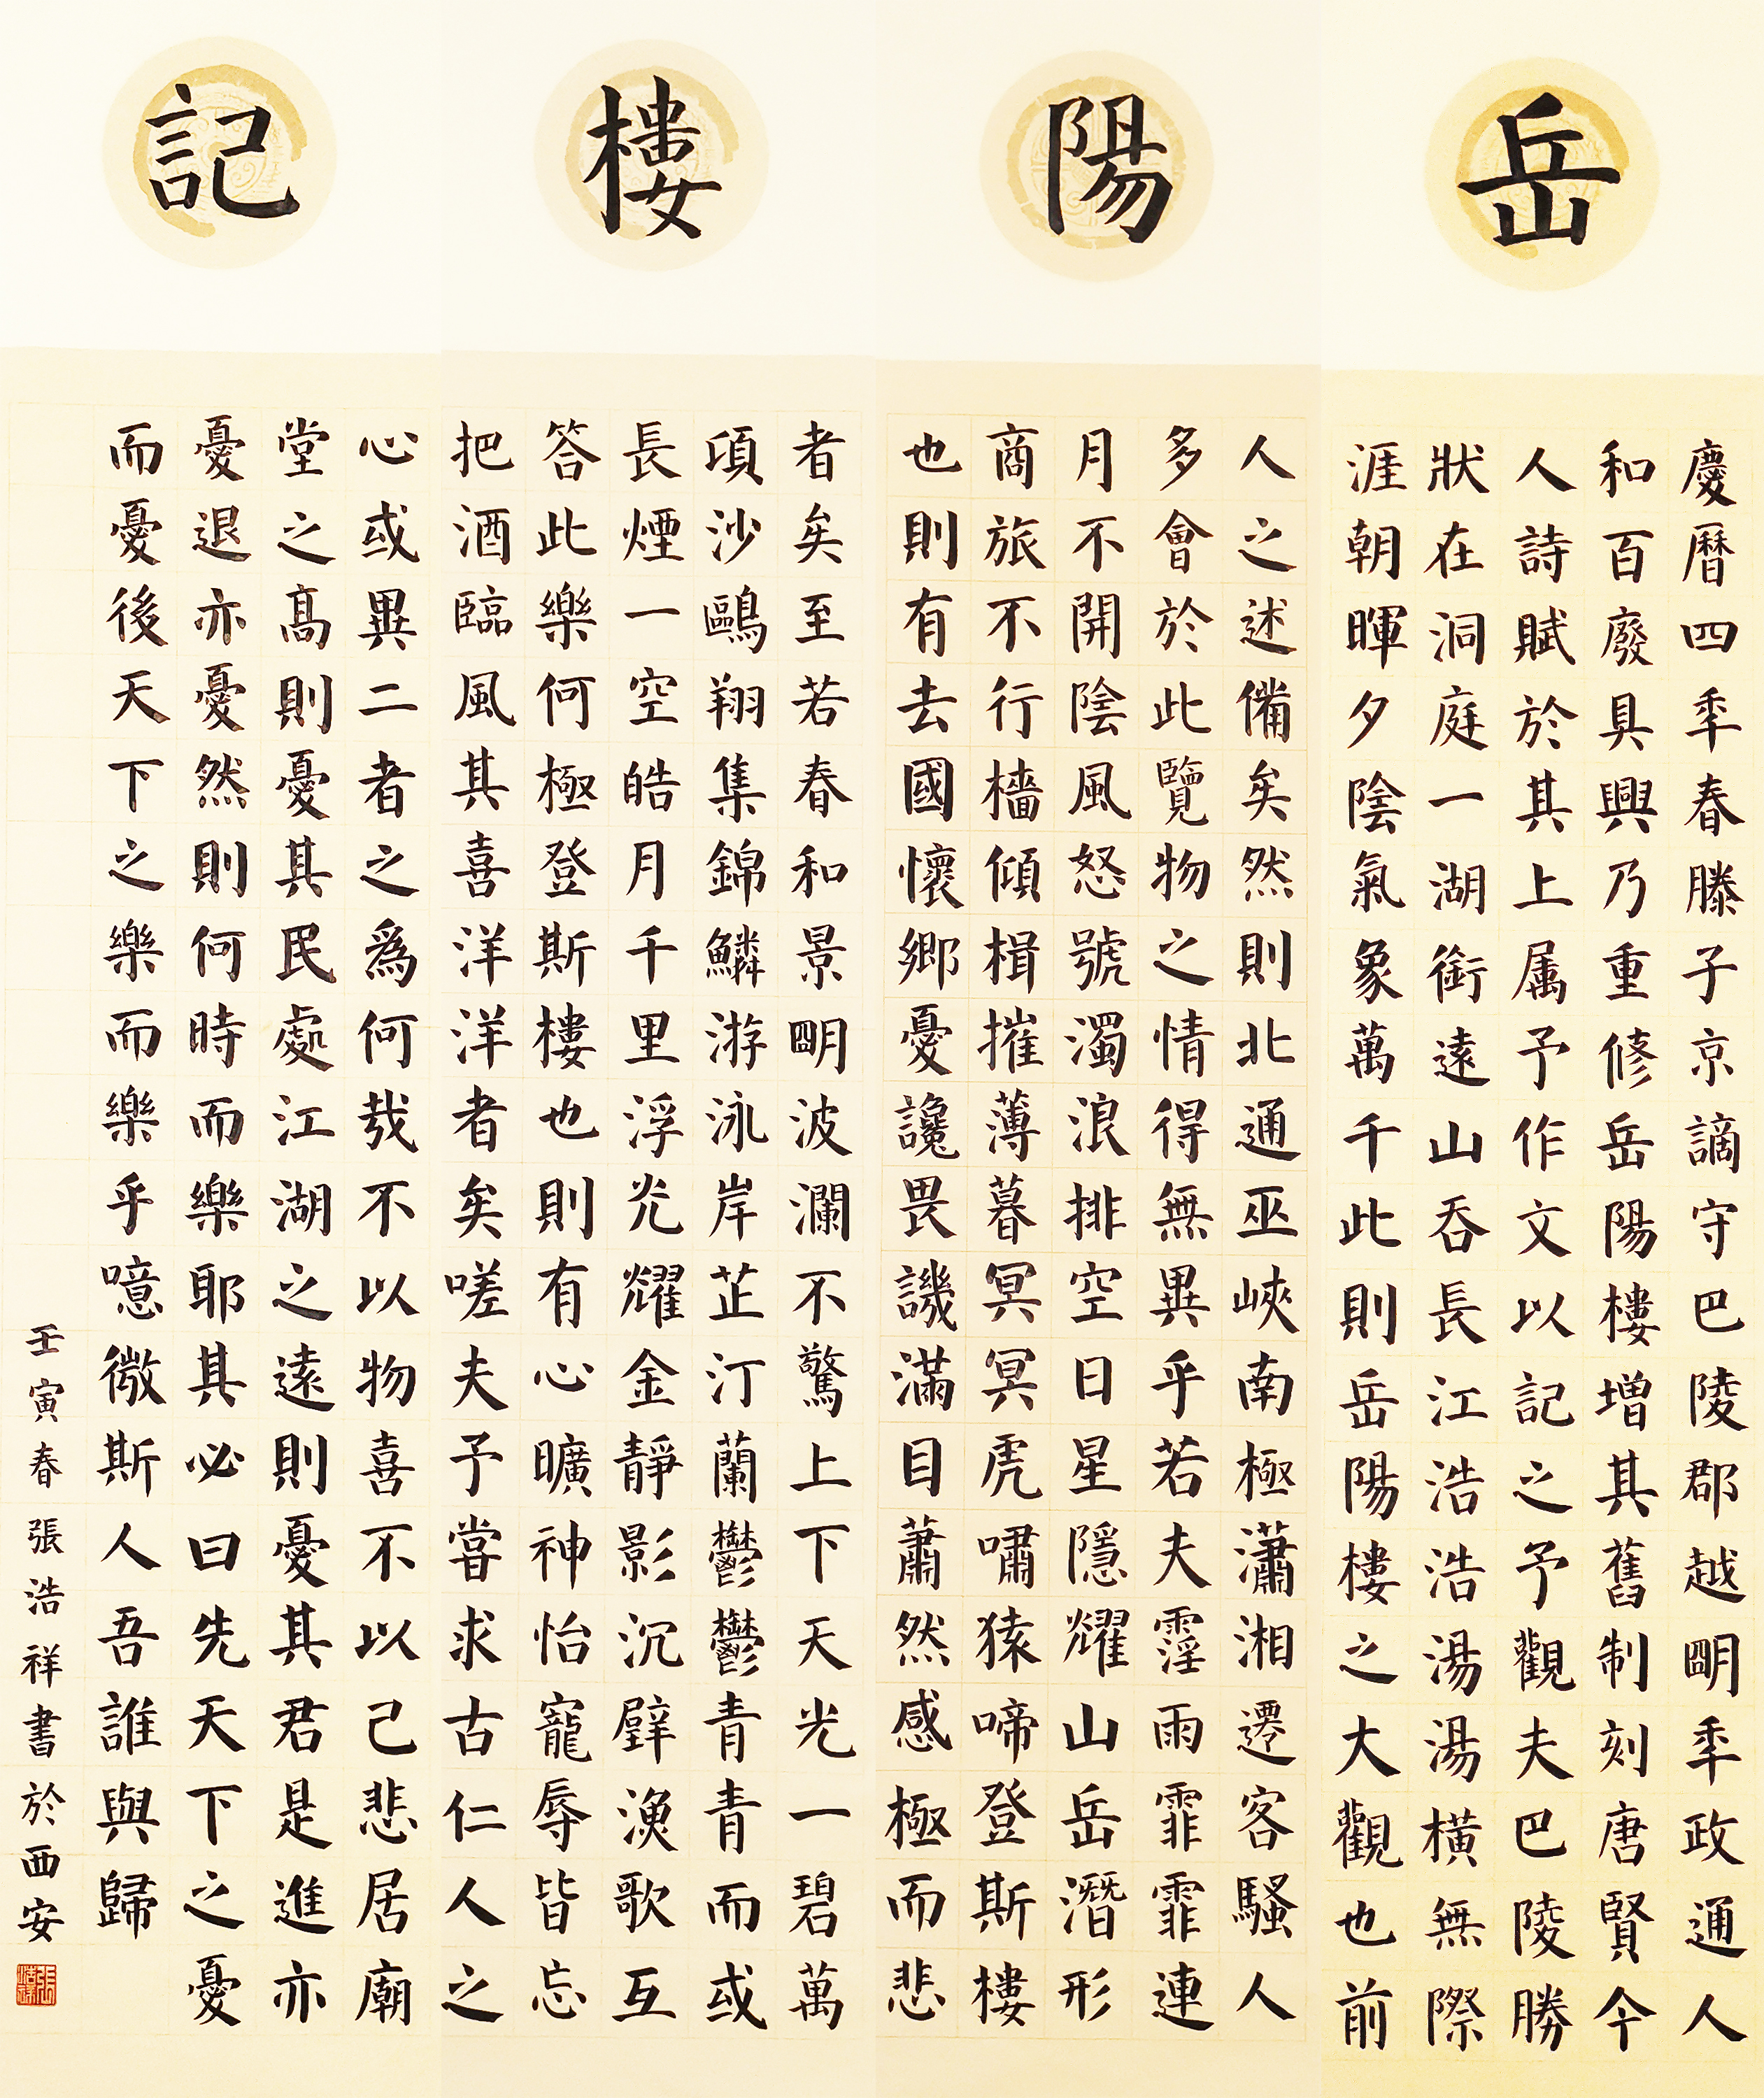 岳陽樓記
慶曆四秊春滕子京謫守巴陵郡越朙秊政通人
和百廢具興乃重修岳陽樓增其舊制刻唐賢今
人詩賦於其上属予作文以記之予觀夫巴陵勝
狀在洞庭一湖銜遠山吞長江浩浩湯湯橫無際
涯朝暉夕陰氣象萬千此則岳陽樓之大觀也前
人之述備矣然則北通巫峽南極瀟湘遷客騷人
多會於此覽物之情得無異乎若夫霪雨霏霏連
月不開陰風怒號濁浪排空日星隱耀山岳潛形
商旅不行檣傾楫摧薄暮冥冥虎嘯猿啼登斯樓
也則有去國懷鄉憂讒畏譏滿目蕭然感極而悲
者矣至若春和景朙波瀾不驚上下天光一碧萬
頃沙鷗翔集錦鱗游泳岸芷汀蘭鬱鬱青青而或
長煙一空皓月千里浮光耀金靜影沉璧漁歌互
答此樂何極登斯樓也則有心曠神怡寵辱皆忘
把酒臨風其喜洋洋者矣嗟夫予嘗求古仁人之
心或異二者之爲何哉不以物喜不以己悲居廟
堂之高則憂其民處江湖之遠則憂其君是進亦
憂退亦憂然則何時而樂耶其必曰先天下之憂
而憂後天下之樂而樂乎噫微斯人吾誰與歸
壬寅春張浩祥書於西安
張浩祥